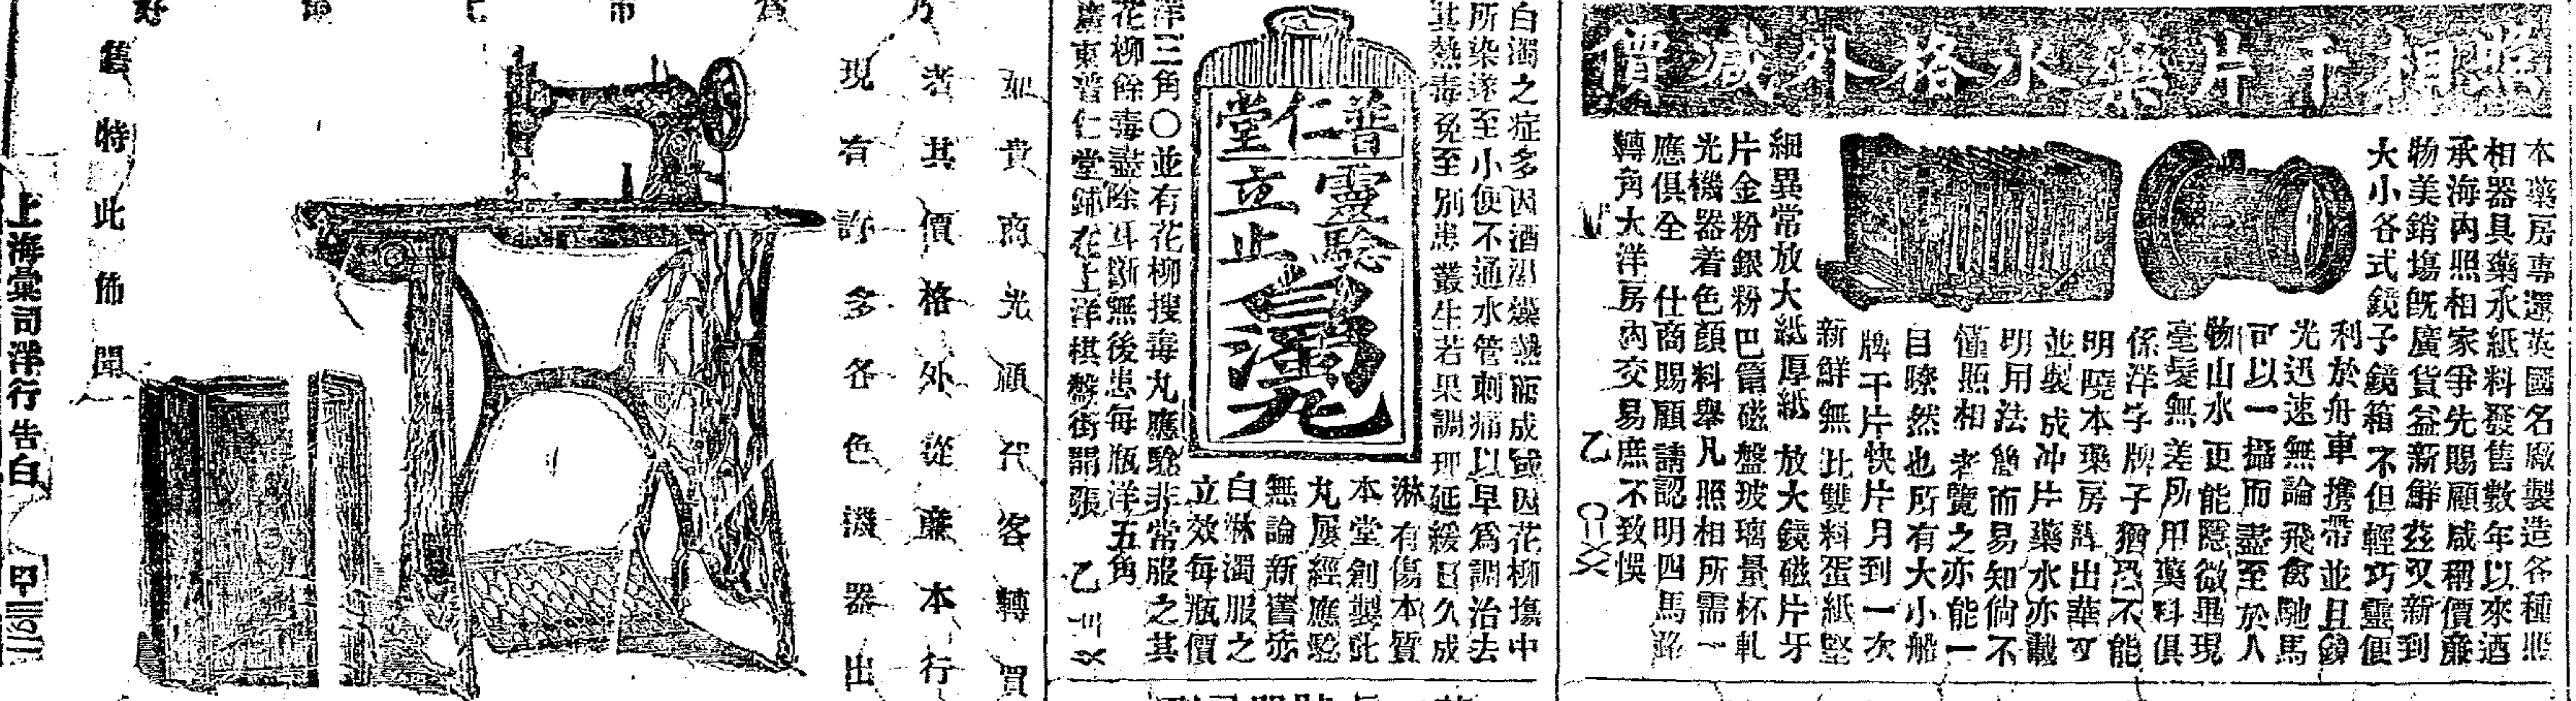 照相干片藥水格外減價
本藥房專選英國名廠製造各種照
相器具藥水紙料發售數年以來酒
承海內照相家爭先賜顧咸稱價廉
物美銷塲旣廣貨益新鮮茲又新到
大小各式鏡子鏡箱不但輕巧靈便
利於舟車携帶並且鏡
光迅速無論飛禽馳馬
可以一攝而盡至於人
物山水更能隱微畢現
毫髮無差所用藥料俱
係洋字牌子猶恐不能
明曉本藥房譯出華文
並製成冲片藥水亦載
明用法簡而易知倘不
僅照相者覽之亦能一
目瞭然也所有大小船
牌干片快片月到一次
新鮮無比雙料蛋紙堅
細異常放大紙厚紙放大鏡磁片牙
片金粉銀粉巴黎磁盤玻璃量杯軋
光機器着色顏料舉凡照相所需一
應俱全 仕商賜顧請認明四馬路
轉角大洋房內交易庶不致悞
乙
白濁之症多因酒濕燥熱而成或因花柳塲中
所染遂至小便不通水管刺痛以早爲調治去
其熱毒免至別患叢生若果調理延緩日久成
淋有傷本質
本堂創製此
丸屢經應驗
無論新舊赤
白淋濁服之
立效每瓶價
洋三角○並有花柳搜毒丸應驗非常服之其
花柳餘毒盡除耳斷無後患每瓶洋五角
廣東普仁堂鋪在上洋棋盤街開張
乙
普仁堂
靈驗
立止
白濁丸
貴商光顧代客轉買
者其價格外從廉本行
現有許多各色機器出
售特此佈聞
上海彙司洋行告白
甲